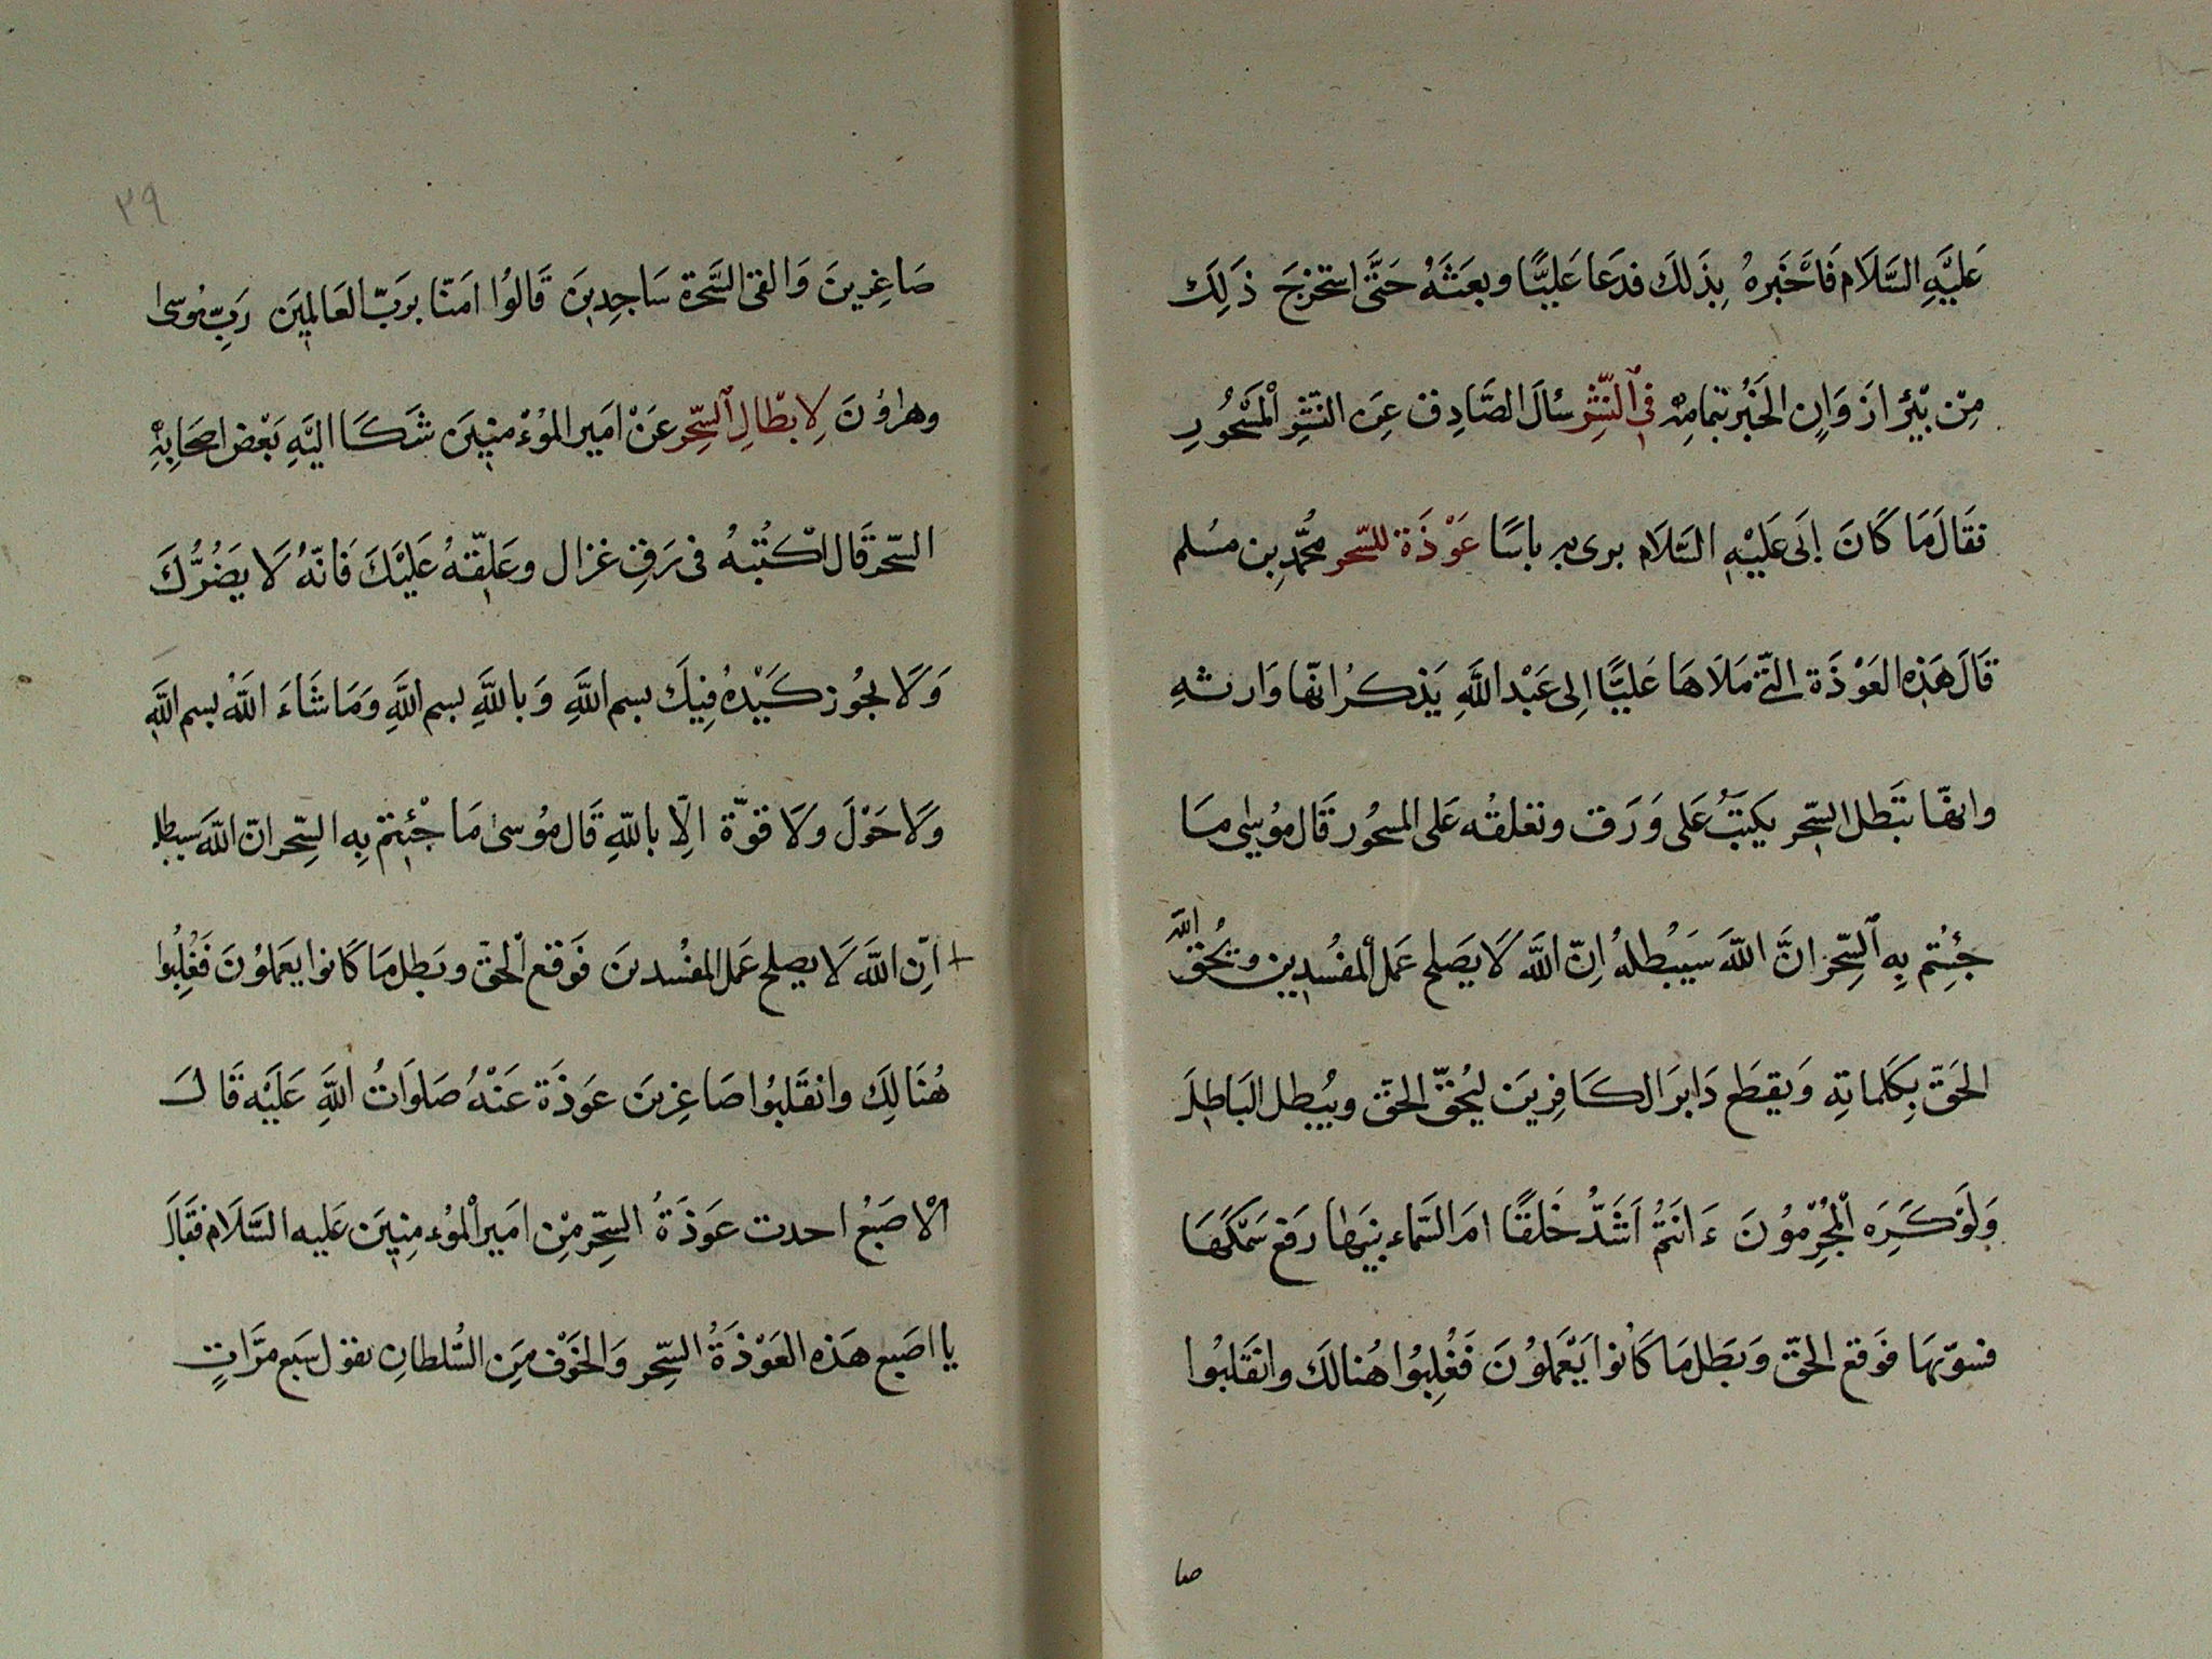 عَلَيْهِ السَّلَام فَاَخْبَرهُ بِذَلكَ فدَعَا عَليًّا وبعَثَهُ حَتَّى استخرجَ ذَلِكَ
مِنْ بئر ازوَانِ الخَبْر بتمامِهِ فِى النَّشْرِ سُالَ الصَّادِق عَنِ النّشْرِ الْمَسْحُورِ
فقَالَ مَا كَانَ اَبى عَلَيْهِ السَّلَام يرى به باسًا عَوْذَة للسّحر محُمَّد بن مسُلم
قَالَ هَذِه العَوْذَة التّى مَلَاهَا عَليًّا اِلى عَبْد اللَّهِ يَذكرُ انّها وَارثهِ
وانهّا تبَطل السّحِر يكتبُ عَلى وَرَق وتعلقُه عَلى المسحُور قَال مُوسٰى مَا
جئُتم بِه السِّحر انَّ اللّهَ سَيبْطلهُ اِنّ اللَّه لَا يَصلح عَمَل المفُسدِين ويُحُقّ اللَّه
الحَقّ بِكلماتهِ وَيقطَع دَابرَ الكَافِرينَ ليُحقّ الحَقّ ويُبطل البَاطِلَ
وَلَوْ كَرَه الْمُجْرِمُونَ ءَانتُمْ اَشَدُّ خَلقًا امَ السَّماء بنيَها رَفع سَمْكَهَا
فسوّيهَا فوَقع الحَقّ وَبَطَل مَا كَانُوا يَعْمَلوُنَ فَغُلِبُوا هُنالكَ وانقَلبُوا
صا
٣٩
صَاغِرينَ وَالقى السَّحَرة سَاجِدينَ قَالوُا امَنّا برَبّ العَالمِينَ رَبِّ مُوسى
وهرُونَ لِابطَالِ السّحِر عَنْ امَير المؤمنينَ شَكَا اليَهِ بَعْض اصحَابِهِ
السّحر قَال اكتُبهُ فى رَقِ غزال وعَلّقهُ عَليْكَ فَانّهُ لَا يَضُرُّكَ
وَلَا يجُوز كَيْدهُ فِيكَ بسم اللَّهِ وَباللَّهِ بسم اللَّهِ وَمَا شَاءَ اللَّهُ بسم اللَّهِ
وَلَا حَوْلَ وَلَا قوّة الّا باللّهِ قَال مُوسٰى مَا جْئتمْ بِه السِّحر انّ اللَّهَ سيبطله
اِنّ اللَّهَ لَا يصلح عَمَل المفْسدينَ فَوَقعَ الْحقّ وبَطل مَا كَانوا يعَملوُنَ فغُلِبُوا
هُنَالِكَ وانقَلَبُوا صَاغِرينَ عَوذَة عَنْهُ صَلوَاتُ اللَّهِ عَلَيْه قَالَ
الْاصَبغُ احدت عَوذَةُ السّحِر مِنْ امَير الْمُؤمنِينَ عَليه السَّلَام فقَالَ
يا اصَبغ هَذه العَوْذَةُ السّحِر وَالخَوْف مِنَ السُّلطانِ تقول سَبع مَرّاتٍ